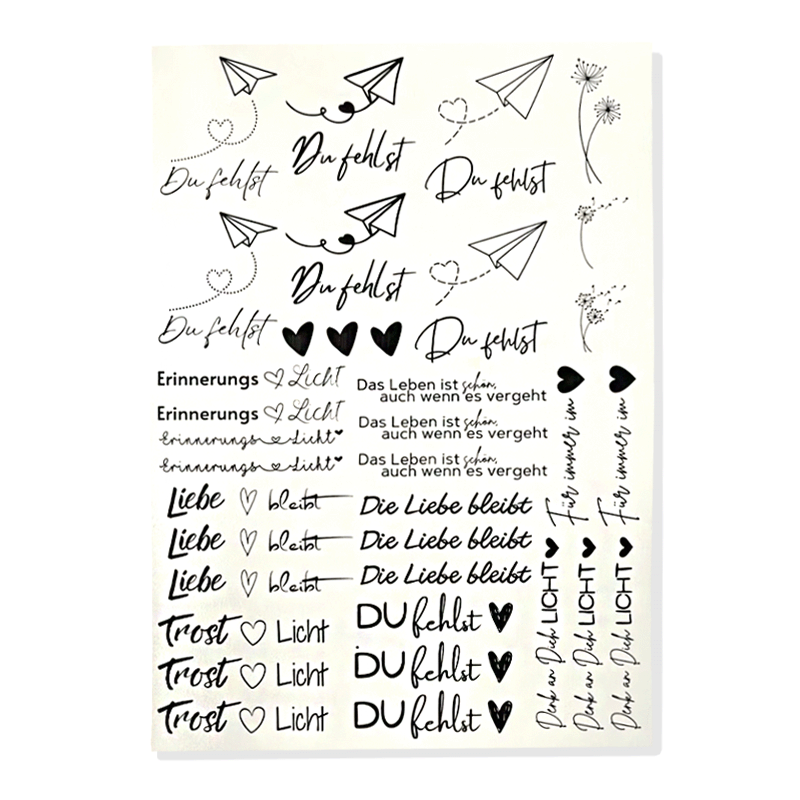 Du fehlst
Du fehlst
Du fehlst
Du fehlst
Du fehlst
Du fehlst
Erinnerungs Licht
Erinnerungs Licht
Erinnerungs Licht
Erinnerungs Licht
Das Leben ist schön,
auch wenn es vergeht
Das Leben ist schön,
auch wenn es vergeht
Das Leben ist schön,
auch wenn es vergeht
Für immer im
Für immer im
Liebe bleibt
Liebe bleibt
Liebe bleibt
Die Liebe bleibt
Die Liebe bleibt
Die Liebe bleibt
Trost Licht
Trost Licht
Trost Licht
DU fehlst
DU fehlst
DU fehlst
Denk an Dich LICHT
Denk an Dich LICHT
Denk an Dich LICHT